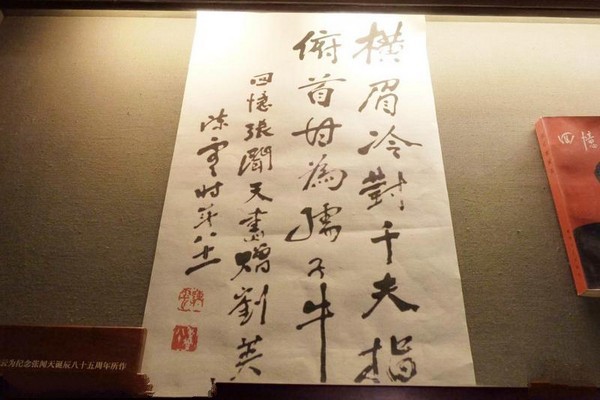 橫眉冷對千夫指
俯首甘為孺子牛
回憶張聞天書贈劉英
陳雲時年八十一
云为纪念张闻天诞辰八十五周年所作
回憶